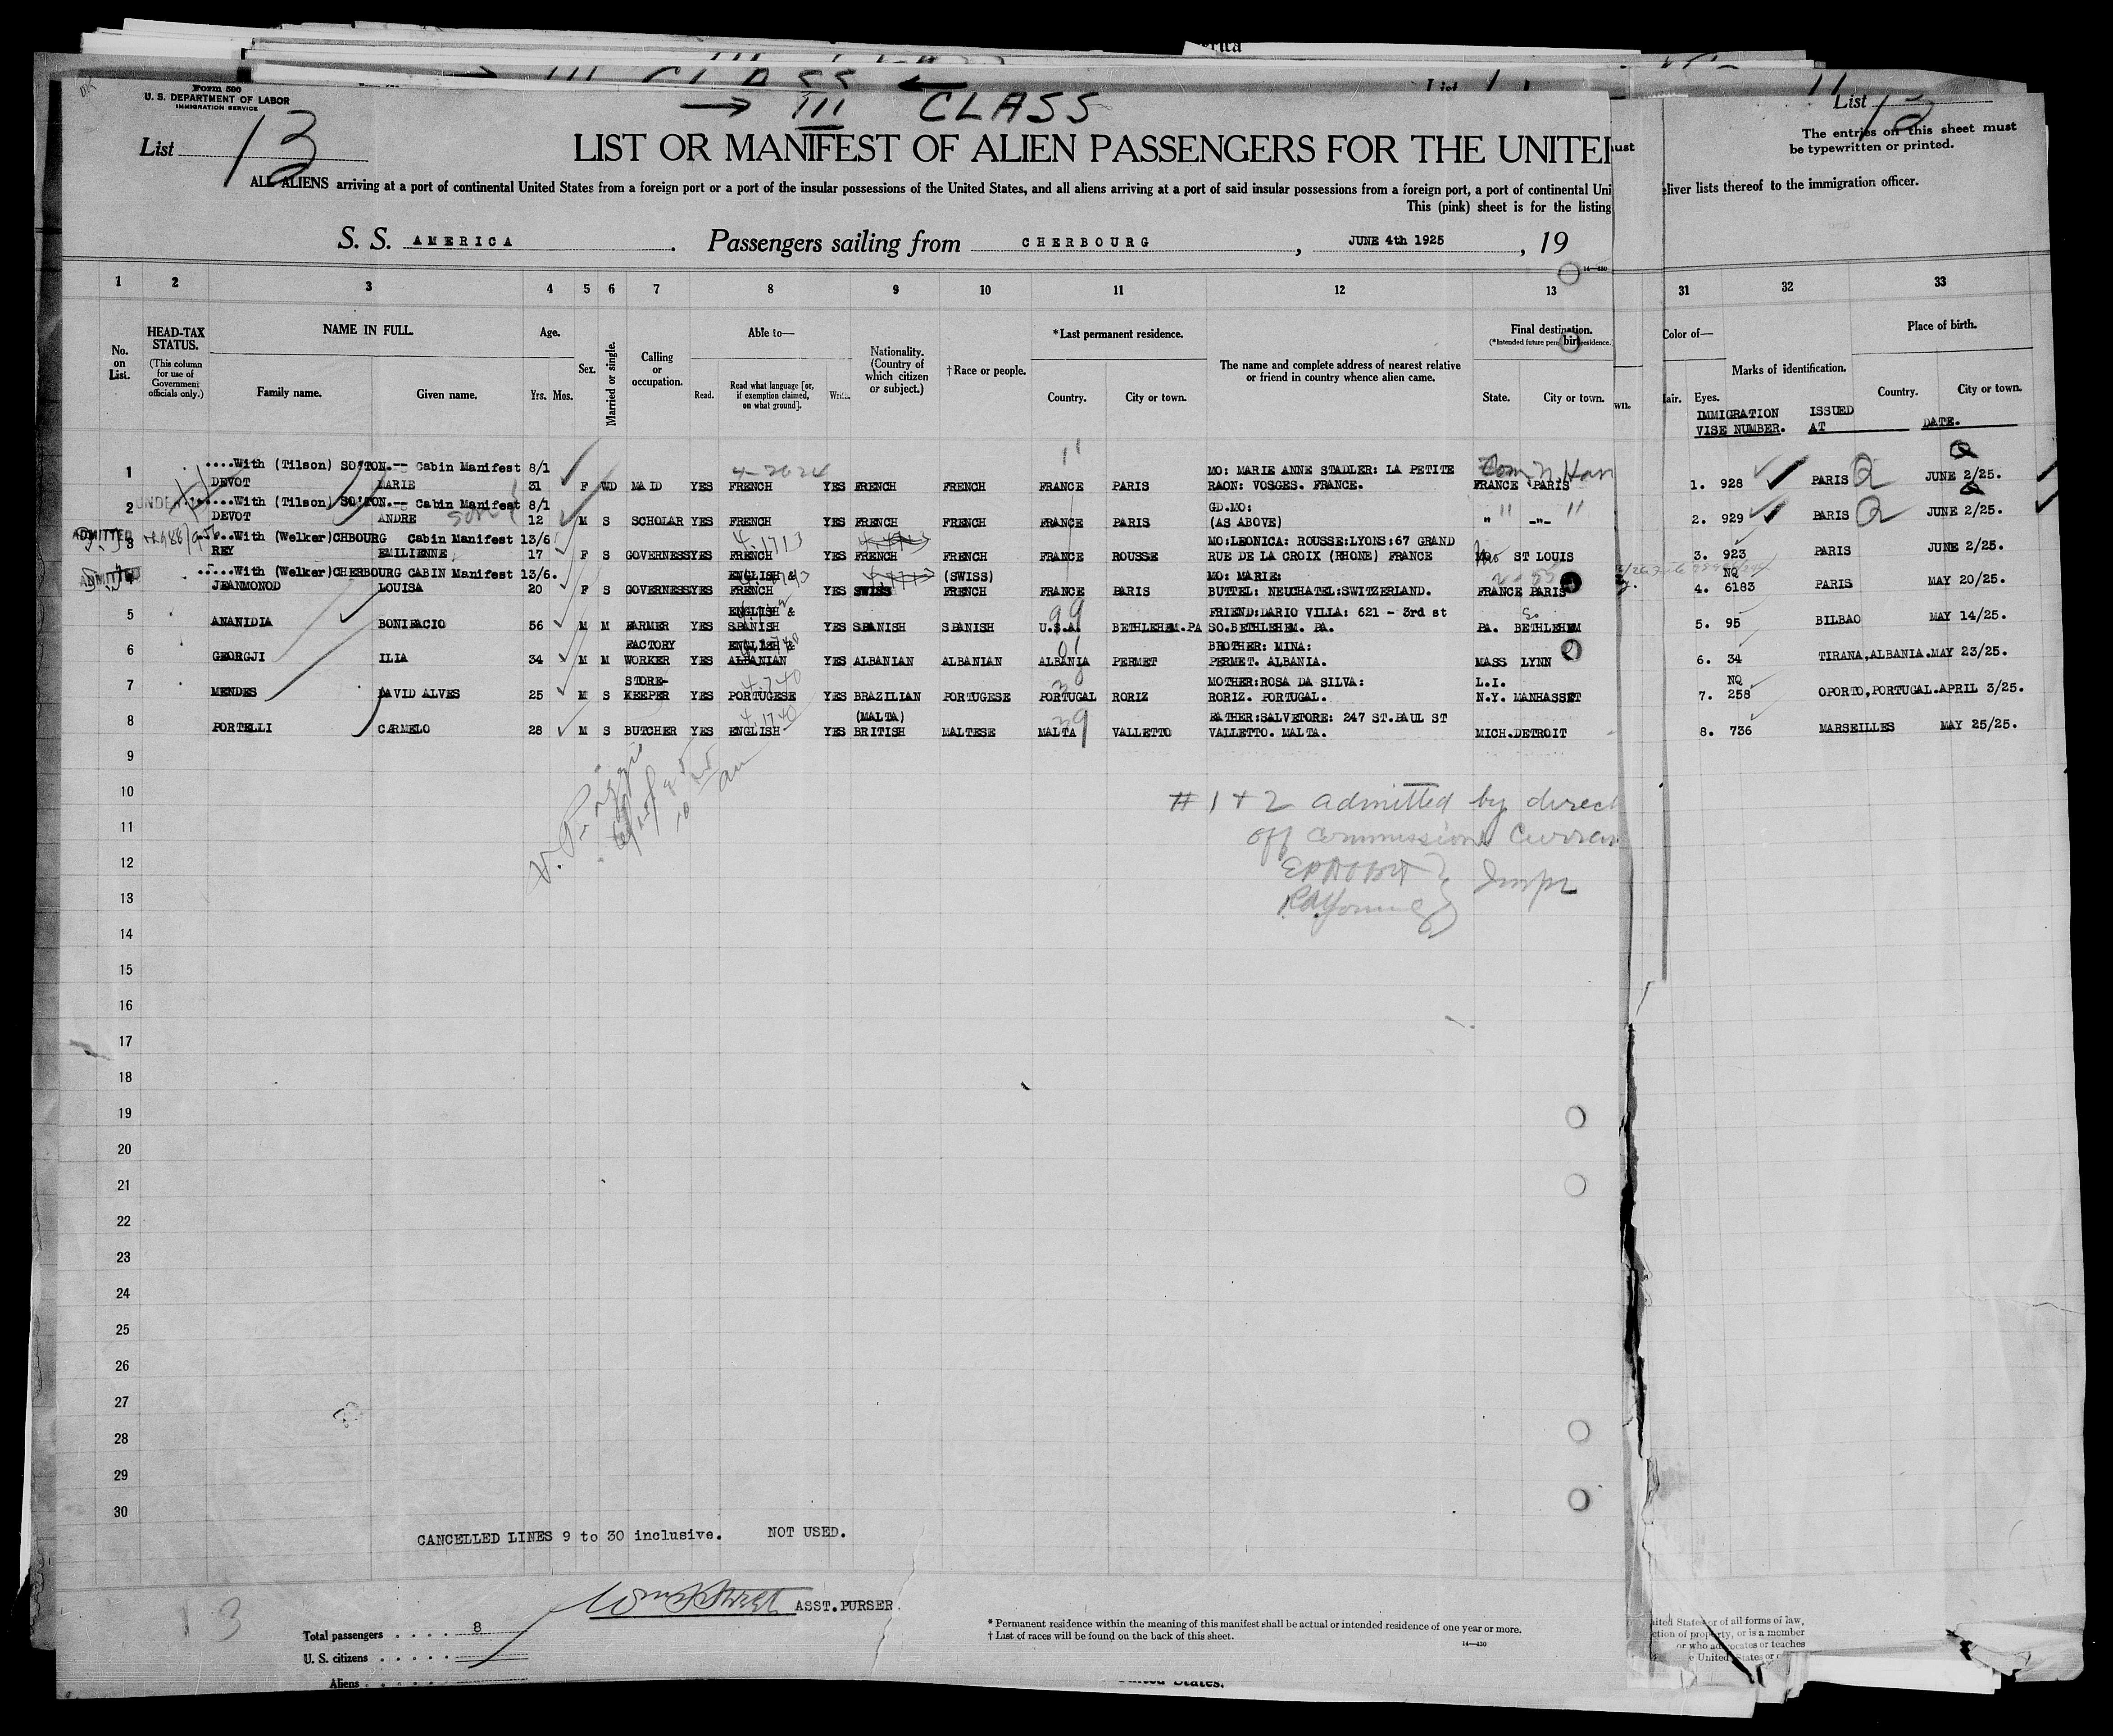 III CLASS
Form 500
U. S. DEPARTMENT OF LABOR
IMMIGRATION SERVICE
List 13
List 13
The entries on this sheet must
be typewritten or printed.
LIST OR MANIFEST OF ALIEN PASSENGERS FOR THE UNITE
ALL ALIENS arriving at a port of continental United States from a foreign port or a port of the insular possessions of the United States, and all aliens arriving at a port of said insular possessions from a foreign port, a port of continental Uni
liver lists thereof to the immigration officer.
This (pink) sheet is for the listing
S. S. AMERICA. Passengers sailing from CHERBOURG, JUNE 4th 1925, 19
1 2 3 4 5 6 7 8 9 10 11 12 13 31 32 33
No. on List.
HEAD-TAX STATUS.
(This column for use of Government officials only.)
NAME IN FULL.
Family name. Given name.
Age.
Yrs. Mos.
Sex.
Married or single.
Calling or occupation.
Able to—
Read. Read what language [or, if exemption claimed, on what ground].
Nationality. (Country of which citizen or subject.)
† Race or people.
*Last permanent residence.
Country. City or town.
The name and complete address of nearest relative or friend in country whence alien came.
Final destination.
State. City or town.
Color of—
Eyes.
Marks of identification.
Place of birth.
Country. City or town.
IMMIGRATION VISE NUMBER. ISSUED AT DATE.
1 ....With (Tilson) SO'TON.-- Cabin Manifest 8/1 MO: MARIE ANNE STADLER: LA PETITE
DEVOT MARIE 31 F WD MAID YES FRENCH YES FRENCH FRENCH FRANCE PARIS RAON: VOSGES. FRANCE. FRANCE PARIS 1. 928 PARIS JUNE 2/25.
2 ....With (Tilson) SO'TON.-- Cabin Manifest 8/1 GD.MO:
DEVOT ANDRE son 12 M S SCHOLAR YES FRENCH YES FRENCH FRENCH FRANCE PARIS (AS ABOVE) " -"- 2. 929 PARIS JUNE 2/25.
ADMITTED
3 ....With (Welker)CHBOURG Cabin Manifest 13/6 MO:LEONICA: ROUSSE:LYONS:67 GRAND
REY EMILIENNE 17 F S GOVERNESS YES FRENCH YES FRENCH FRENCH FRANCE ROUSSE RUE DE LA CROIX (RHONE) FRANCE ST LOUIS 3. 923 PARIS JUNE 2/25.
ADMITTED
4 .....With (Welker)CHERBOURG CABIN Manifest 13/6. ENGLISH & (SWISS) MO: MARIE: NQ
JEANMONOD LOUISA 20 F S GOVERNESS YES FRENCH YES SWISS FRENCH FRANCE PARIS BUTTEL: NEUCHATEL:SWITZERLAND. FRANCE PARIS 4. 6183 PARIS MAY 20/25.
5 ENGLISH & FRIEND:DARIO VILLA: 621 - 3rd st
ANANIDIA BONIFACIO 56 M M FARMER YES SPANISH YES SPANISH SPANISH U.S.A. BETHLEHEM.PA SO.BETHLEHEM. PA. PA. BETHLEHEM 5. 95 BILBAO MAY 14/25.
6 FACTORY ENGLISH & BROTHER: MINA:
GEORGJI ILIA 34 M M WORKER YES ALBANIAN YES ALBANIAN ALBANIAN ALBANIA PERMET PERMET. ALBANIA. MASS LYNN 6. 34 TIRANA,ALBANIA. MAY 23/25.
7 STORE- MOTHER:ROSA DA SILVA: L.I. NQ
MENDES DAVID ALVES 25 M S KEEPER YES PORTUGESE YES BRAZILIAN PORTUGESE PORTUGAL RORIZ RORIZ. PORTUGAL. N.Y. MANHASSET 7. 258 OPORTO,PORTUGAL. APRIL 3/25.
8 (MALTA) FATHER:SALVETORE: 247 ST.PAUL ST
PORTELLI CARMELO 28 M S BUTCHER YES ENGLISH YES BRITISH MALTESE MALTA VALLETTO VALLETTO. MALTA. MICH. DETROIT 8. 736 MARSEILLES MAY 25/25.
9
10
# 1 + 2 admitted by direct
11
off commissioner Curran
12
Inspr
13
14
15
16
17
18
19
20
21
22
23
24
25
26
27
28
29
30
CANCELLED LINES 9 to 30 inclusive. NOT USED.
ASST.PURSER.
13
Total passengers . . . . . 8
U. S. citizens . . . . . .
Aliens . . . . . .
* Permanent residence within the meaning of this manifest shall be actual or intended residence of one year or more.
† List of races will be found on the back of this sheet.
14—430
United States.